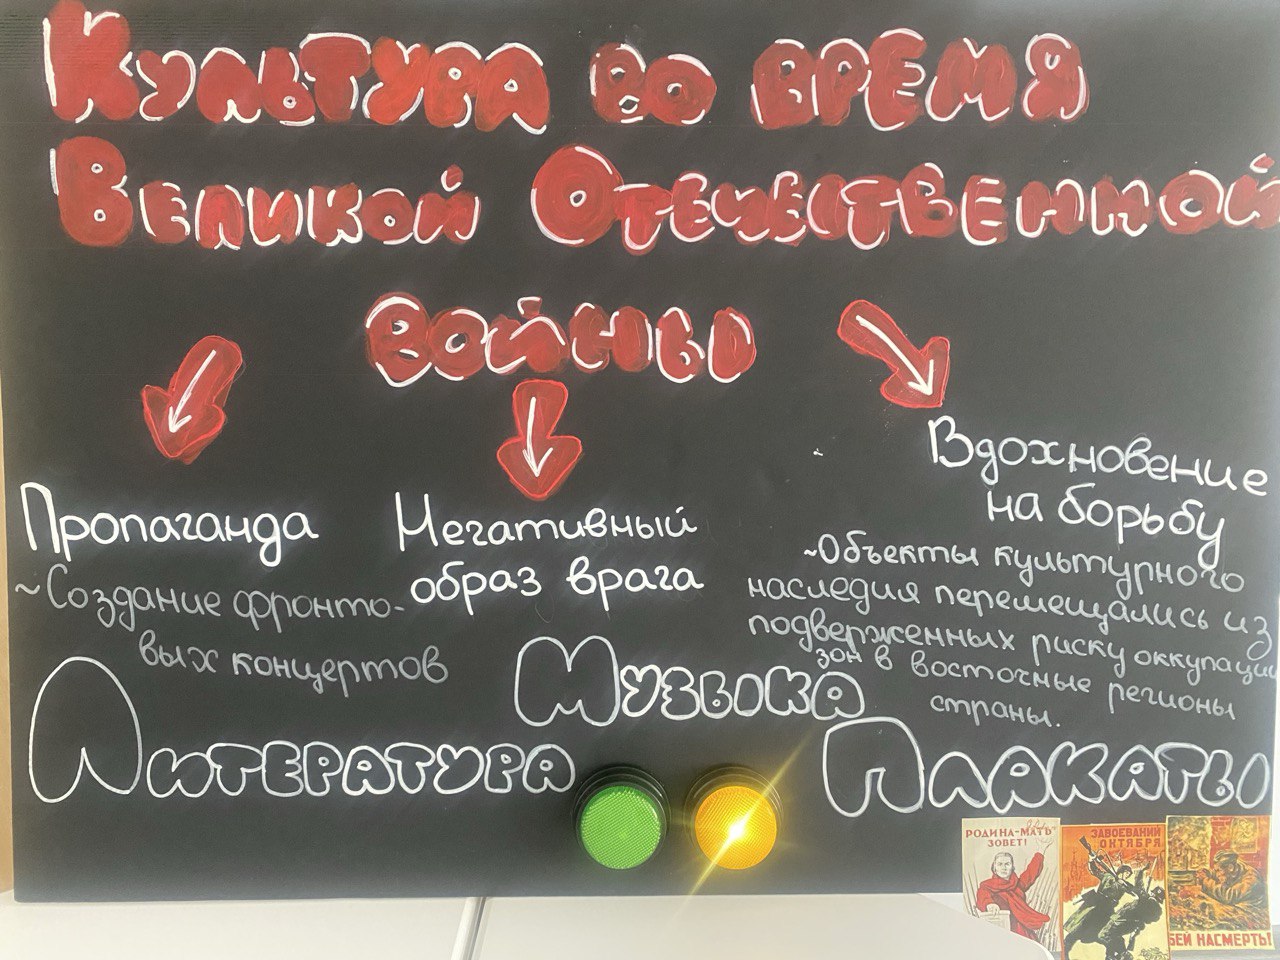 Культура во время
Великой Отечественной
войны
Пропаганда
~Создание фронто-
вых концертов
Негативный
образ врага
Вдохновение
на борьбу
~Объекты культурного
наследия перемещались из
подверженных риску оккупации
зон в восточные регионы
страны.
Музыка
Литература
Плакаты
РОДИНА-МАТЬ
ЗОВЕТ!
ЗАВОЕВАНИЙ
ОКТЯБРЯ
БЕЙ НАСМЕРТЬ!